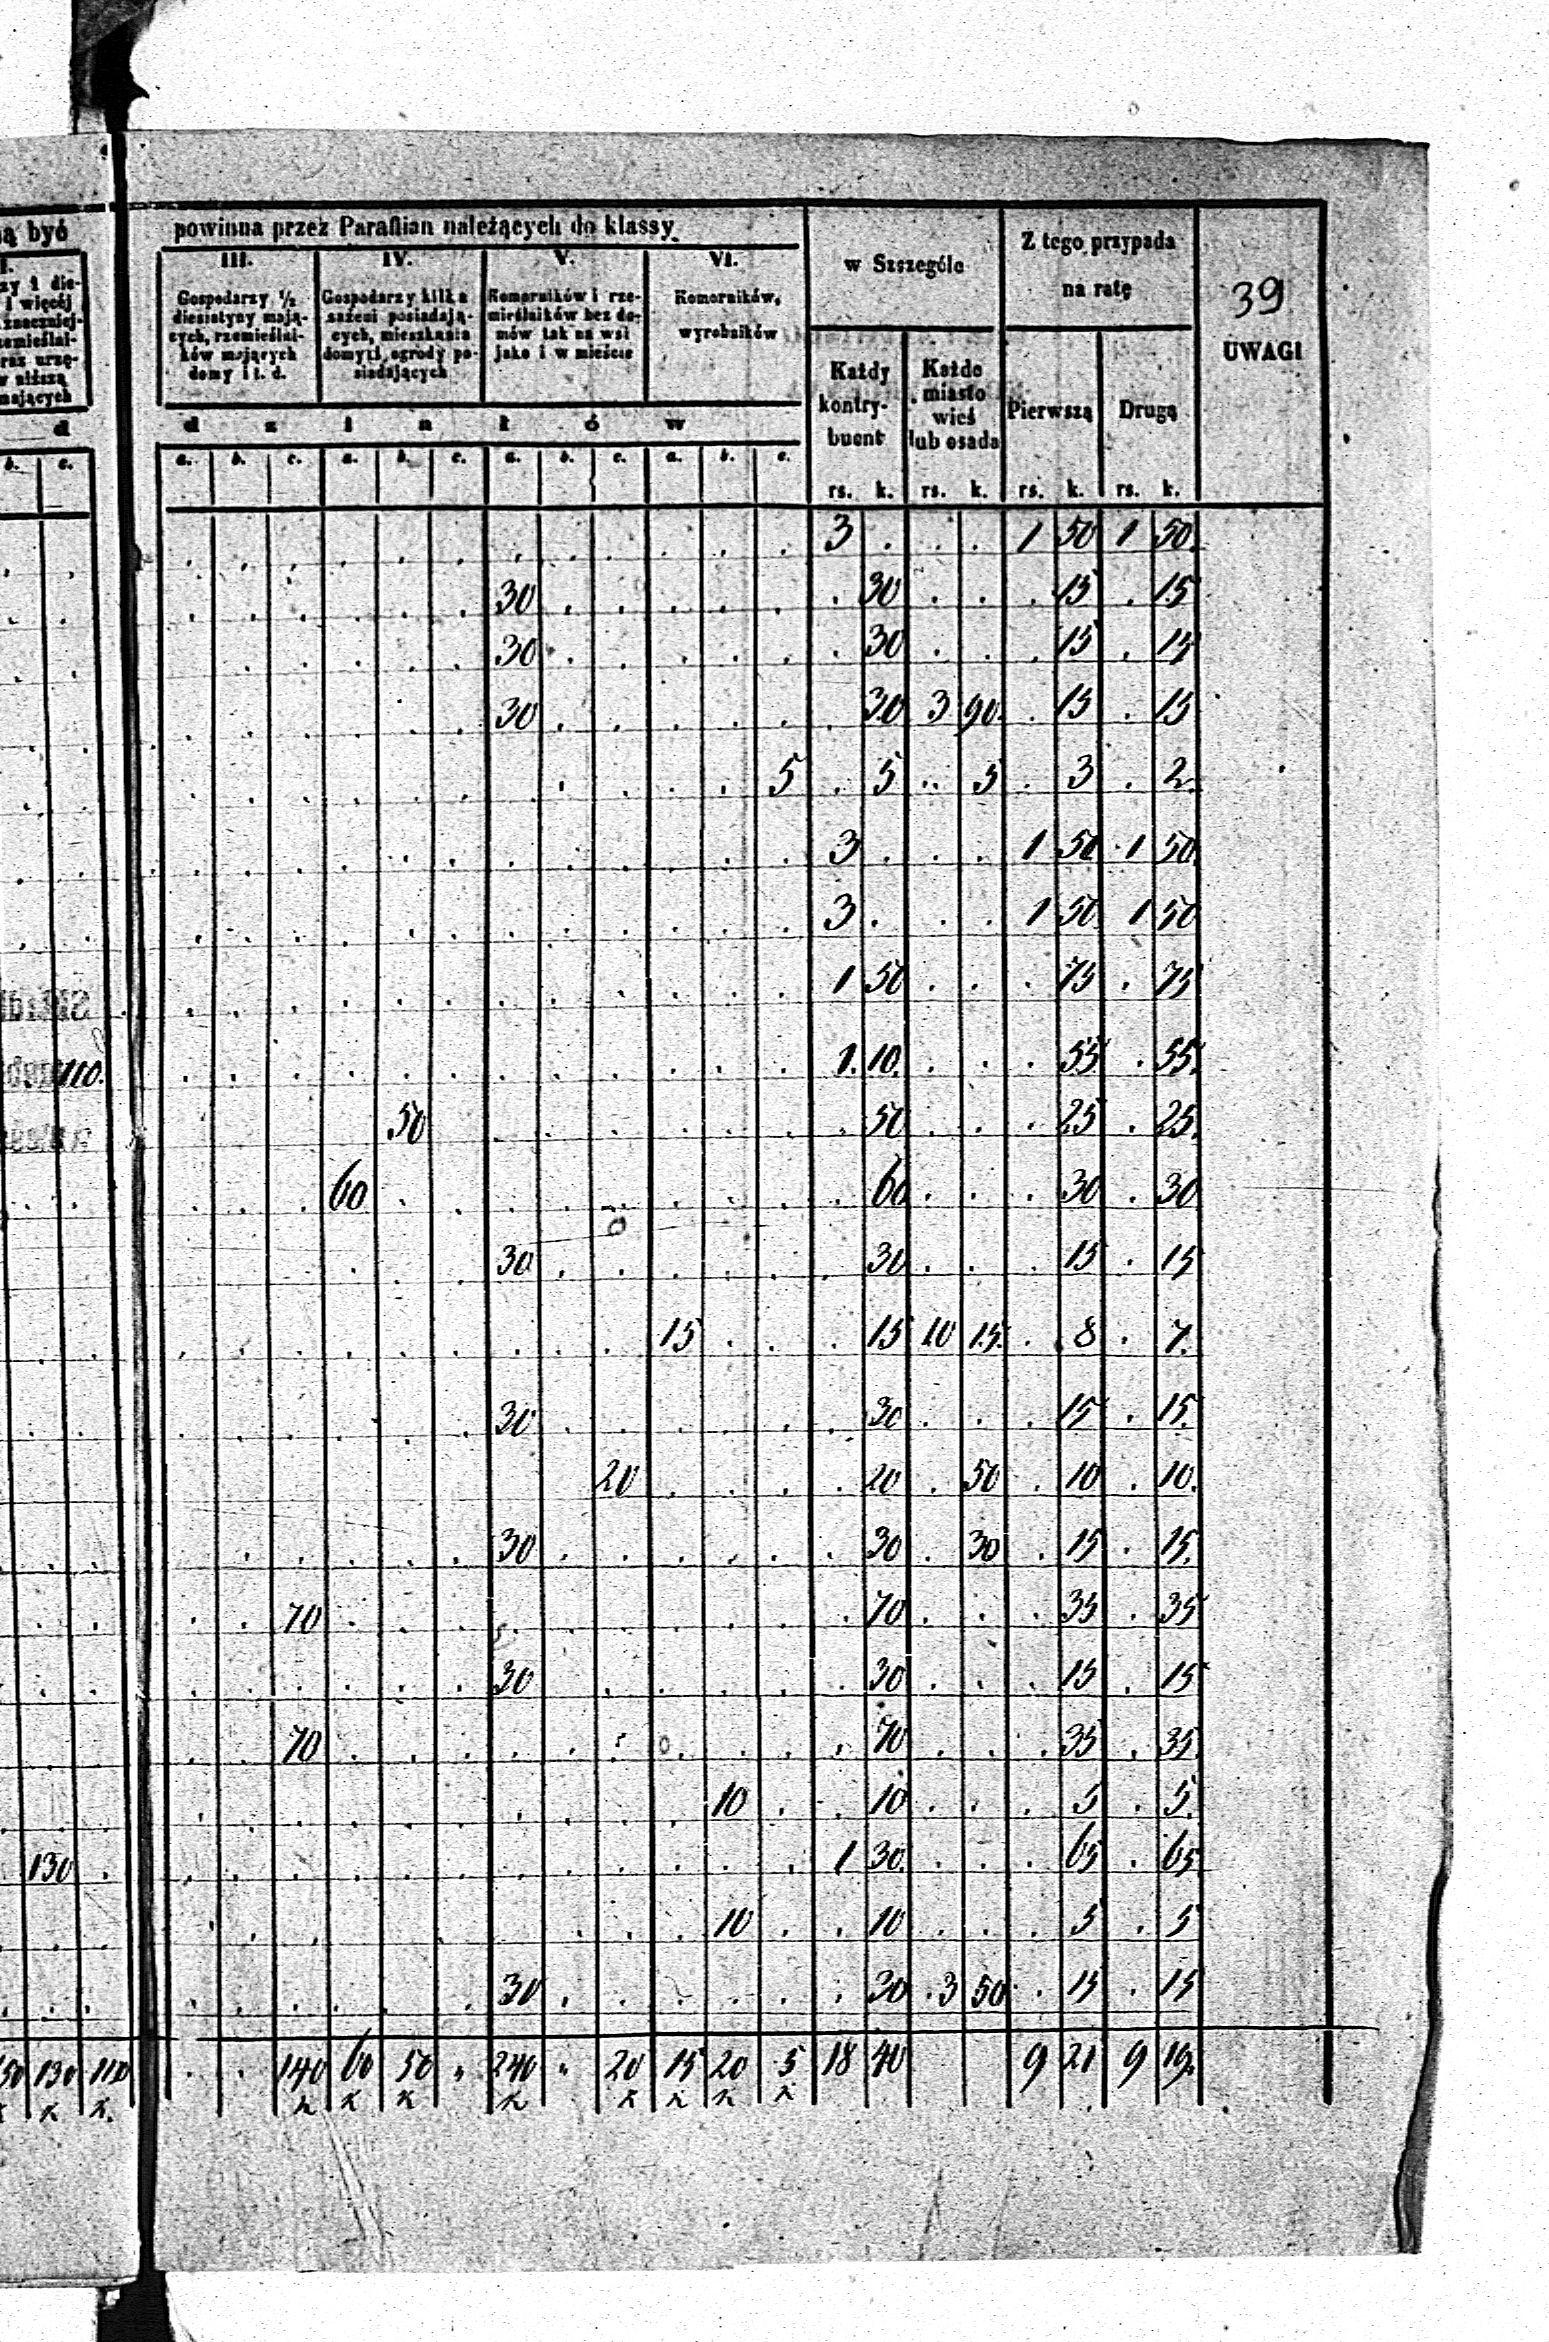 ą być powinna przez Parafian należących do klassy w Szczególe Z tego przypada na ratę 39 UWAGI
III. IV. V. VI.
Gospodarzy ½ diesiatyny mających, rzemieślników mających domy i t. d.
Gospodarzy kilka sażeni posiadających, mieszkania domy i ogrody posiadających
Komorników i rzemieślników bez domów tak na wsi jako i w mieście
Komorników, wyrobników
Każdy kontrybuent
Każde miasto wieś lub osada
Pierwszą Drugą
d z i a ł ó w
b. c. a. b. c. a. b. c. a. b. c. a. b. c. rs. k. rs. k. rs. k. rs. k.
3 . . . 1 50 1 50
30 . 30 . . . 15 . 15
30 . 30 . . . 15 . 15
30 . 30 3 90 . 15 . 15
5 . 5 . 5 . 3 . 2
3 . . . 1 50 1 50
3 . . . 1 50 1 50
1 50 . . . 75 . 75
110 1 10 . . . 55 . 55
50 . 50 . . . 25 . 25
60 . 60 . . . 30 . 30
30 . 30 . . . 15 . 15
15 . 15 10 15 . 8 . 7
30 . 30 . . . 15 . 15
20 . 20 . 50 . 10 . 10
30 . 30 . 30 . 15 . 15
70 . 70 . . . 35 . 35
30 . 30 . . . 15 . 15
70 . 70 . . . 35 . 35
10 . 10 . . . 5 . 5
130 1 30 . . . 65 . 65
10 . 10 . . . 5 . 5
30 . 30 3 50 . 15 . 15
130 110 . . 140 60 50 " 240 " 20 15 20 5 18 40 9 21 9 19